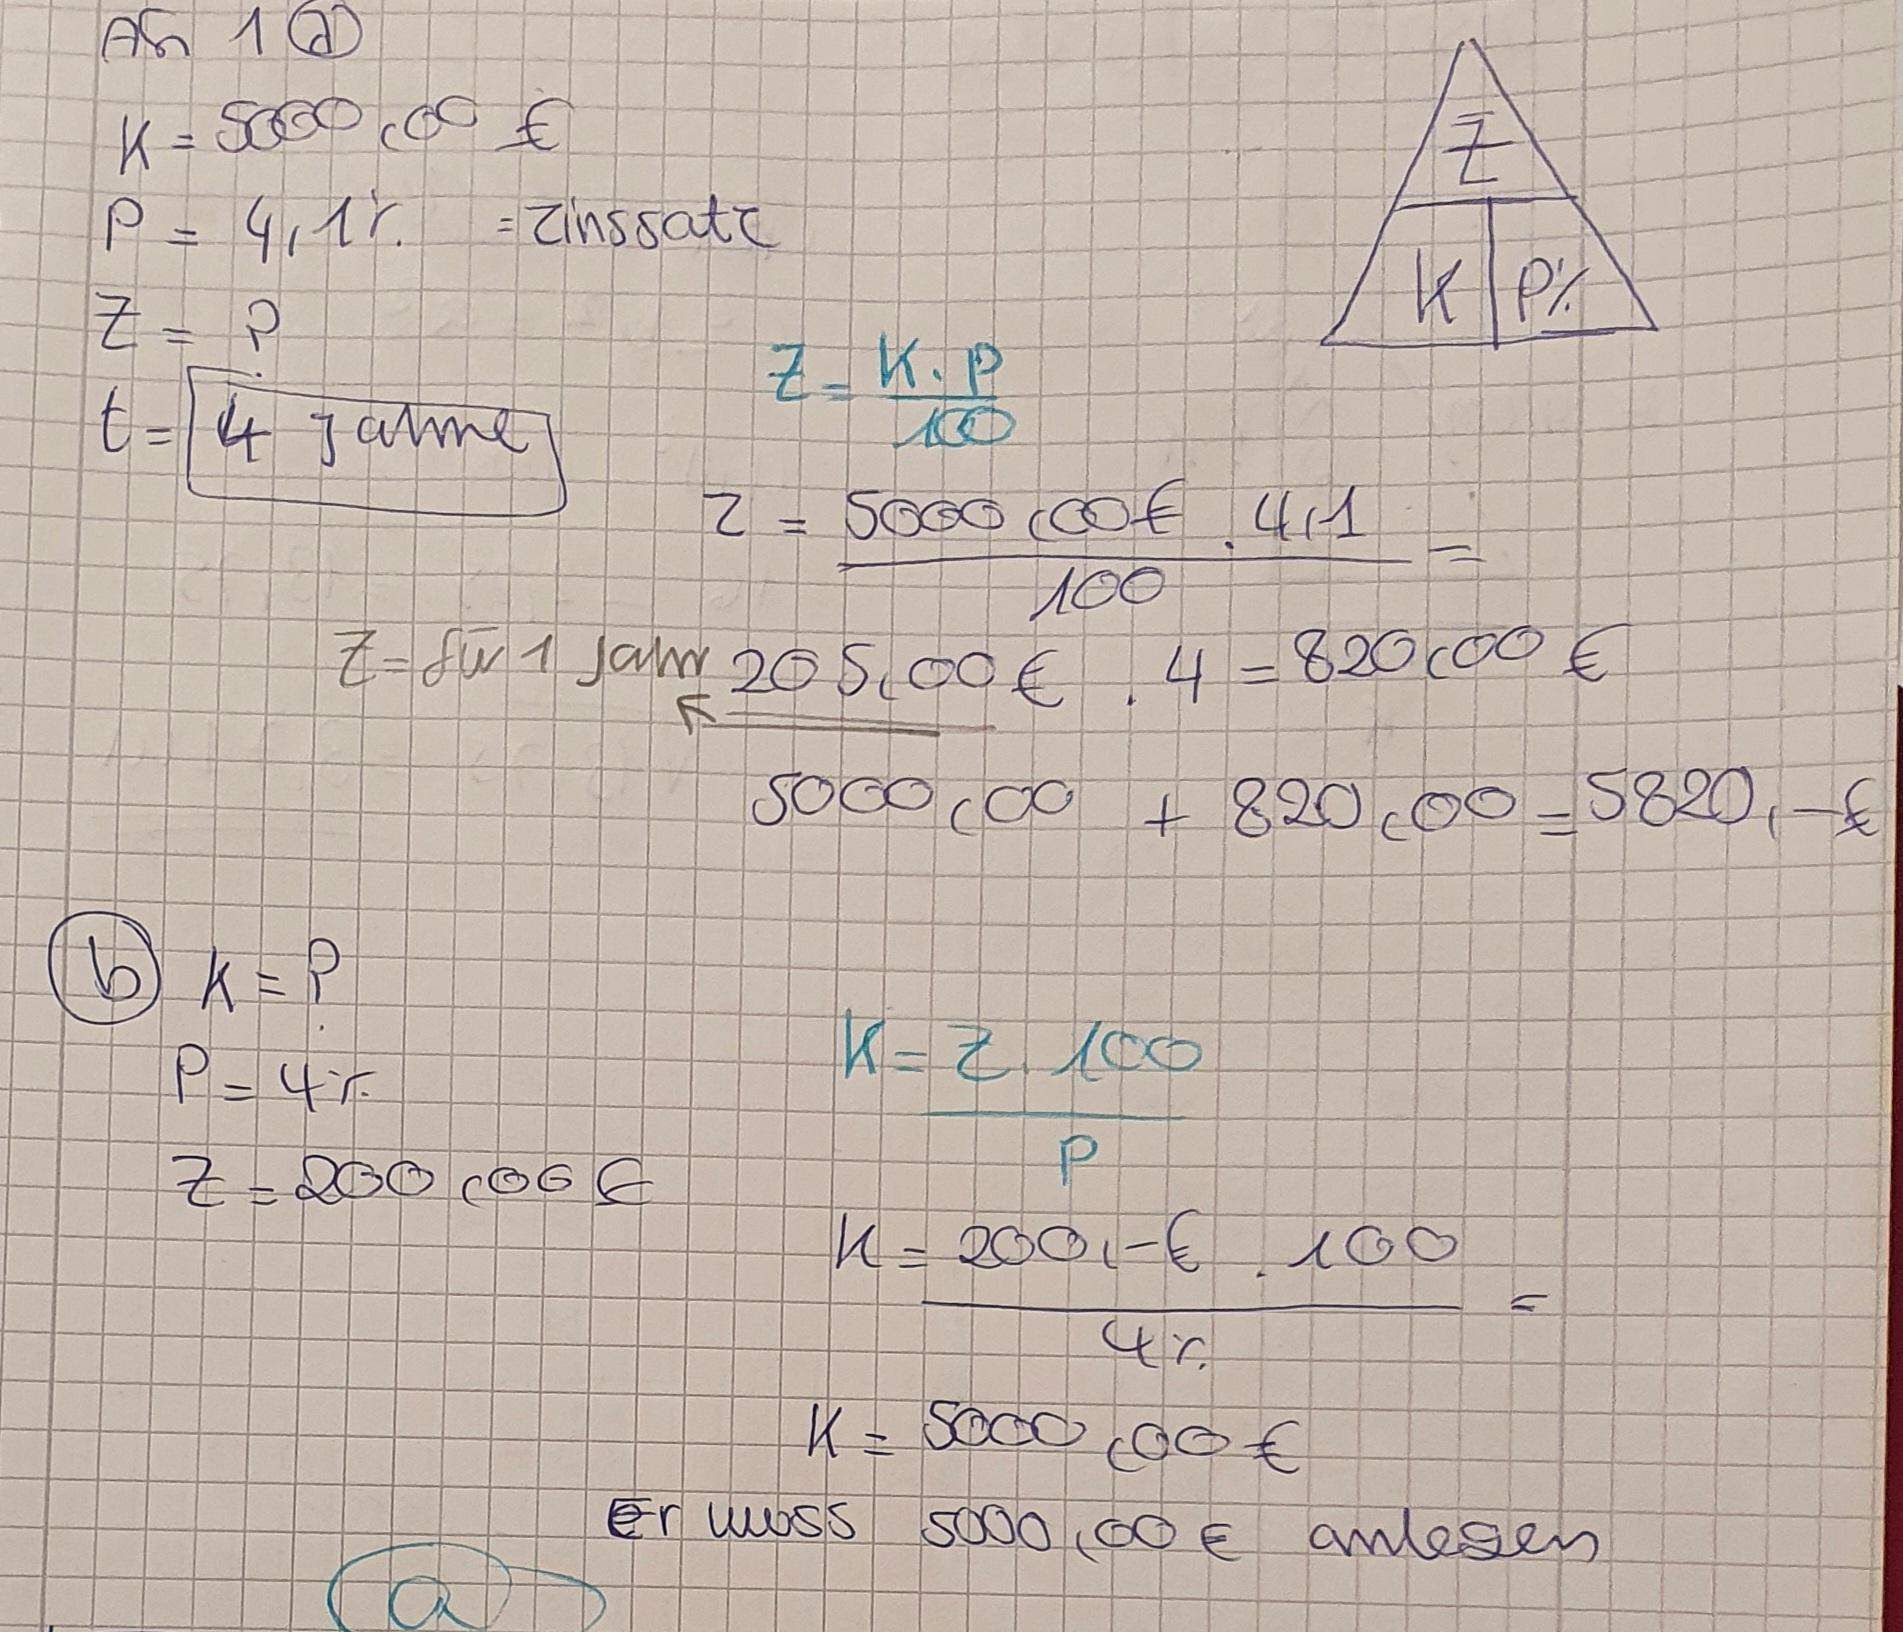 AB 1 a
K = 5000,00 €
P = 4,1% = Zinssatz
Z = ?
t = 4 Jahre
Z
K P%
Z = K · P
100
Z = 5000,00 € · 4,1 =
100
Z = für 1 Jahr 205,00 € · 4 = 820,00 €
5000,00 + 820,00 = 5820,-€
b K = ?
P = 4%
Z = 200,00 €
K = Z · 100
P
K = 200,-€ · 100 =
4%
K = 5000,00 €
Er muss 5000,00 € anlegen
a